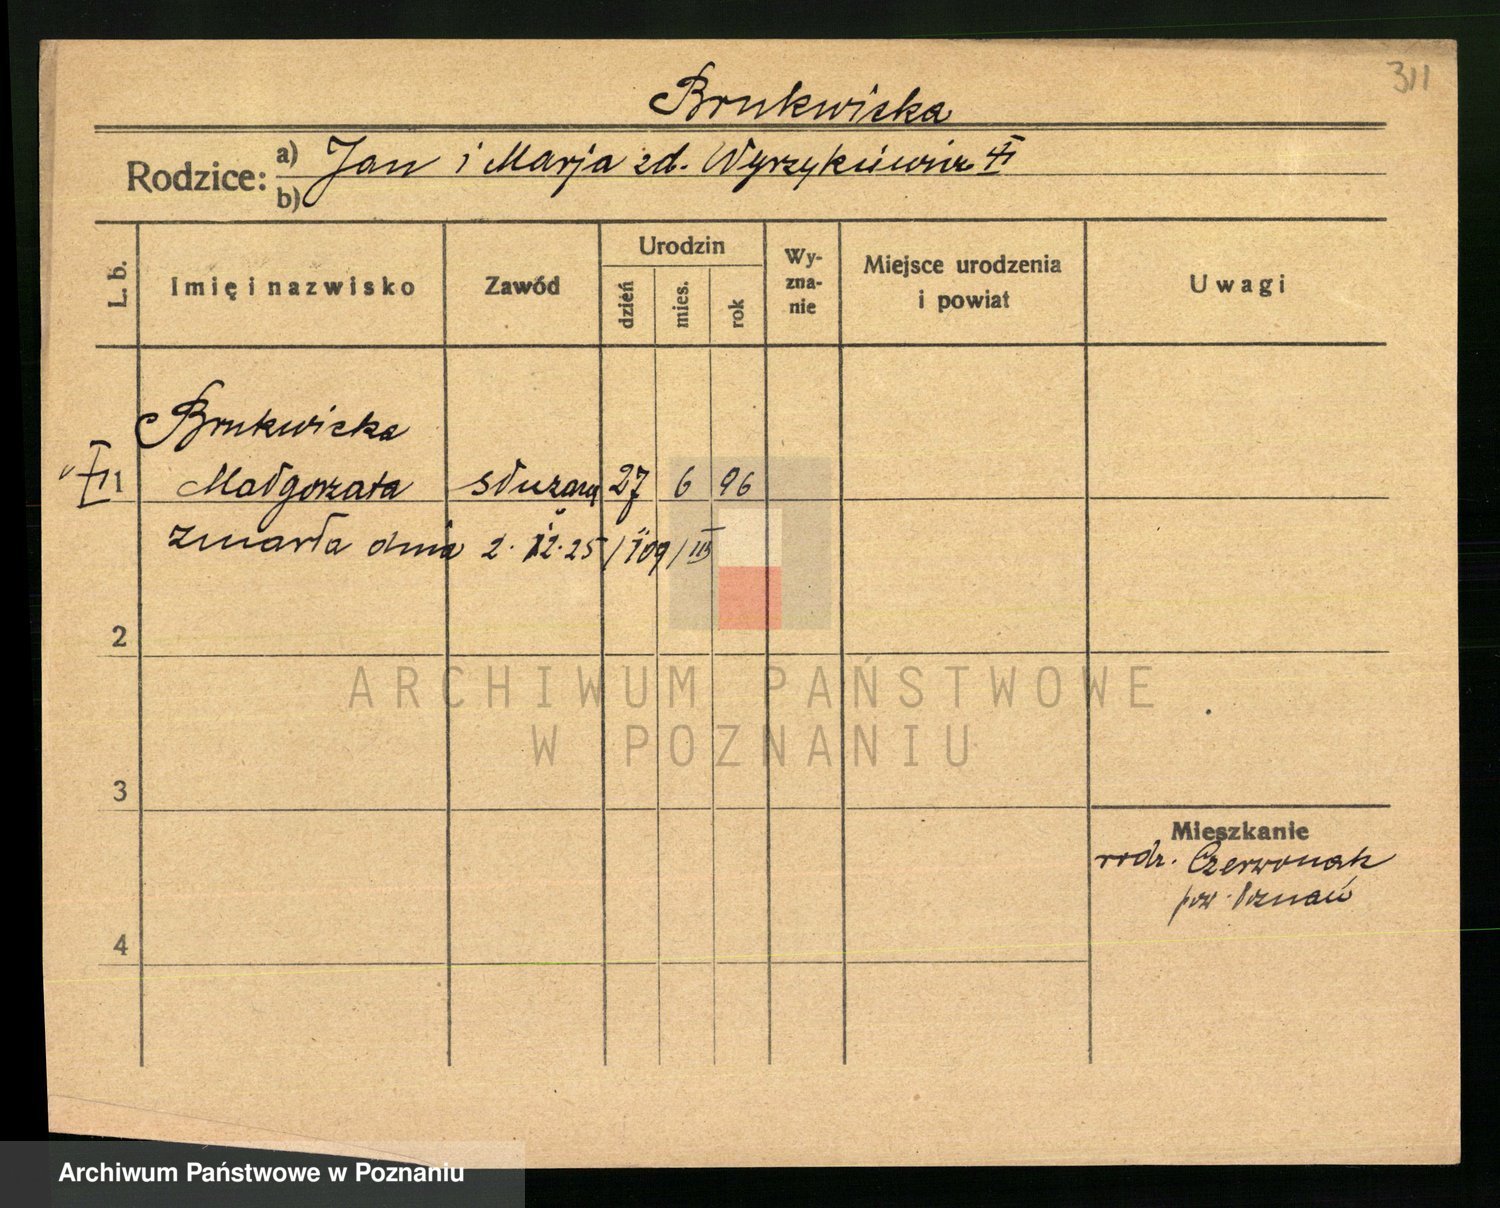 311
Brukwicka
Rodzice: a) Jan i Marja zd. Wyrzykiewicz
b)
L. b. Imię i nazwisko Zawód Urodzin dzień mies. rok Wy-zna-nie Miejsce urodzenia i powiat Uwagi
Brukwicka
1 Małgorzata służąca 27 6 96
zmarła dnia 2. 12. 25 / 109 / III
2
ARCHIWUM PAŃSTWOWE
W POZNANIU
3
Mieszkanie
rodz. Czerwonak
pow. Poznań
4
Archiwum Państwowe w Poznaniu